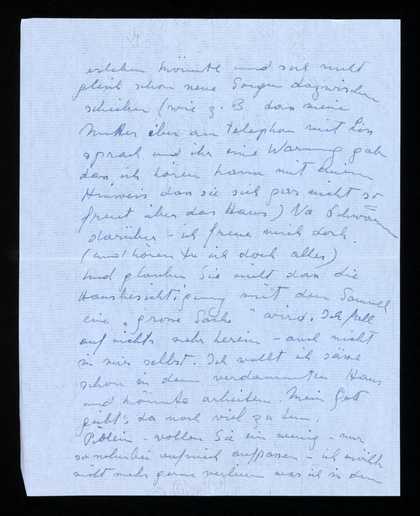 erleben könnte und sich nicht
gleich schon neue Sorgen dazwischen
schieben (wie z. B. dass meine
Mutter über das Telephon mit
sprach und ihr eine Warnung gab
dass ich hören kann mit einem
Hinweis dass sie sich gar nicht so
freut über das Haus) Na Schwamm
darüber - ich freue mich doch.
(und hören tu ich doch alles)
Und glauben Sie nicht dass die
Hausbesichtigung mit dem
eine "grosse Sache" wird. Ich falle
auf nichts mehr herein - auch nicht
in mir selbst. Ich wollt ich sässe
schon in dem verdammten Haus
und könnte arbeiten. Mein Gott
gibt's da noch viel zu tun.
wollen Sie ein wenig - nur
auf mich aufpassen - ich möchte
nicht mehr gerne verlieren was ich in dem